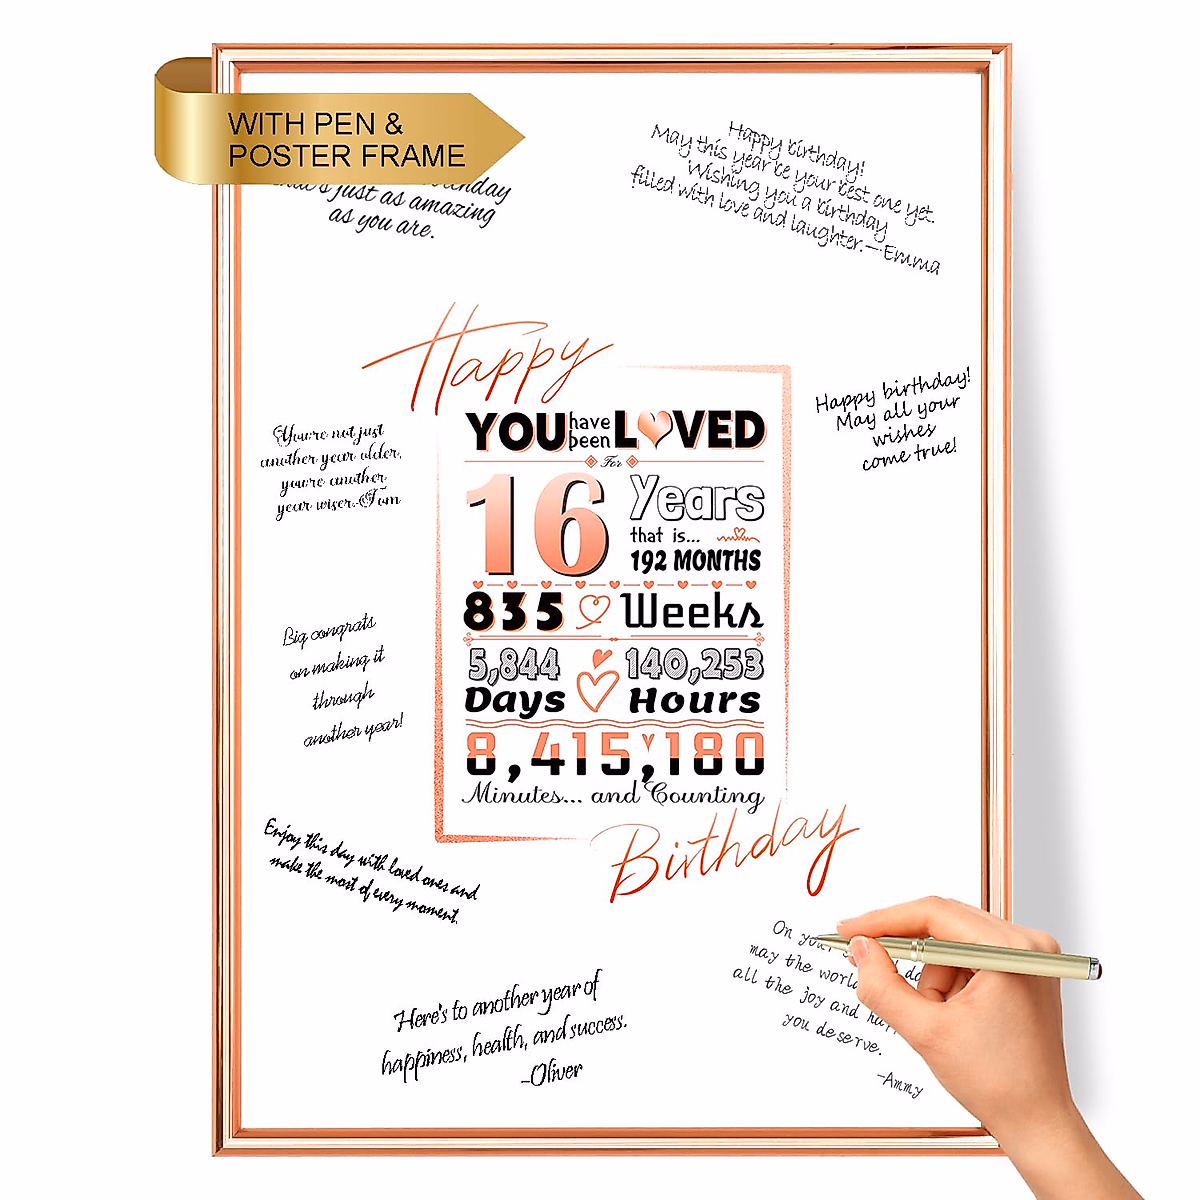 WITH PEN &
POSTER FRAME
just as amazing
as you are.
Happy birthday!
May this year be your best one yet.
Wishing you a birthday
filled with love and laughter.—Emma
Happy
YOU have been LOVED
For
16 Years
that is...
192 MONTHS
835 Weeks
5,844 Days
140,253 Hours
8,415,180
Minutes... and Counting
Birthday
You're not just
another year older,
you're another
year wiser.-Tom
Happy birthday!
May all your
wishes
come true!
Big congrats
on making it
through
another year!
Enjoy this day with loved ones and
make the most of every moment.
Here's to another year of
happiness, health, and success.
-Oliver
On
may the
all the joy and
you deserve.
-Ammy